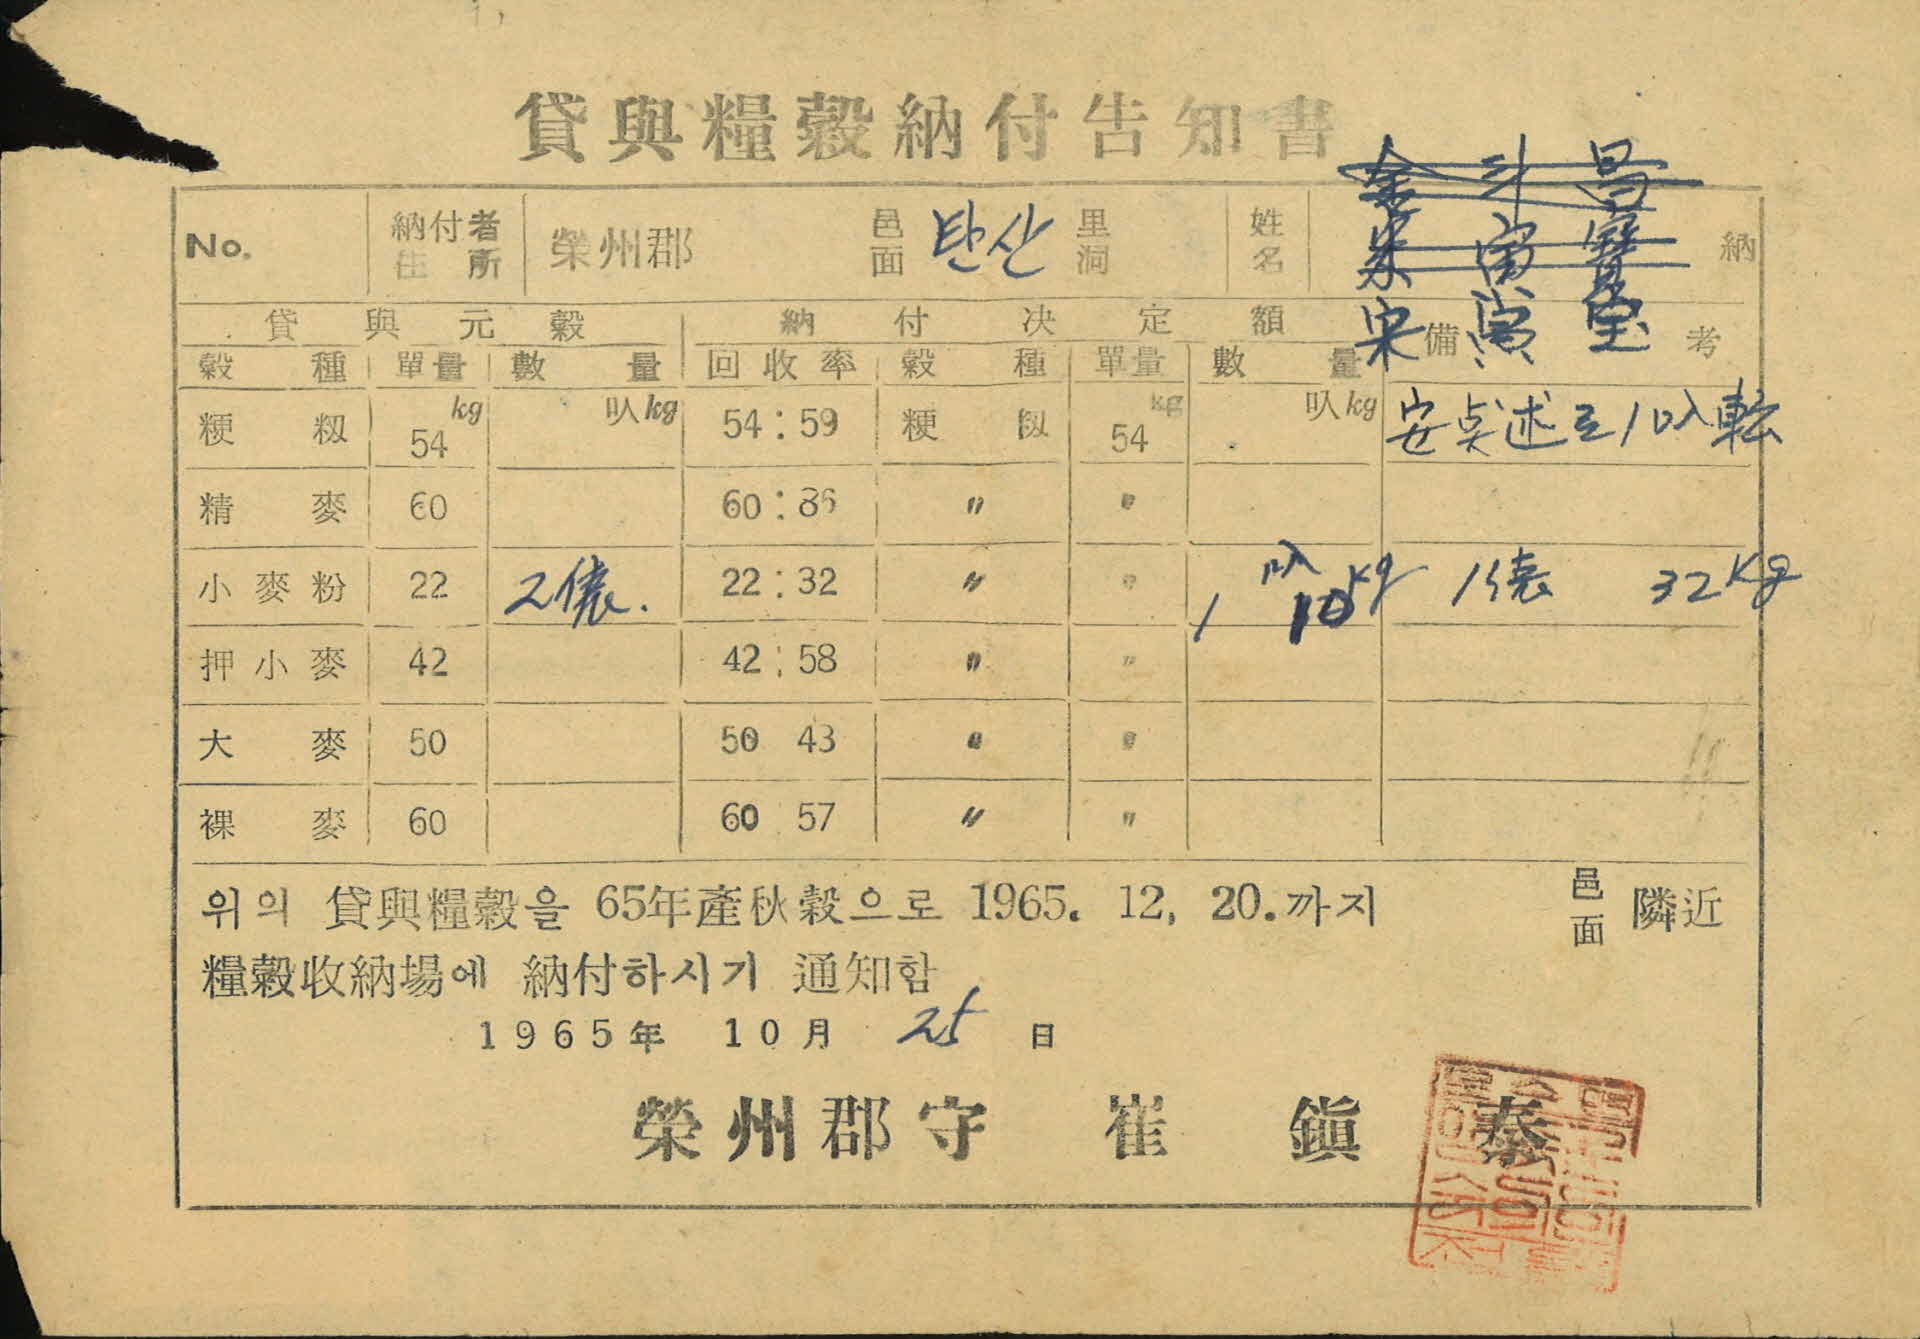 貸與糧穀納付告知書
No. 納付者住所 榮州郡 邑面 탄산 里洞 姓名 納
金斗昌
宋寅寶
宋寅宝
貸與元穀 納付決定額 備考
穀種 單量 數量 回收率 穀種 單量 數量
粳籾 54kg 叺kg 54:59 粳籾 54kg 叺kg 安貞述로1叺転
精麥 60 60:86 〃 〃
小麥粉 22 2俵. 22:32 〃 〃 1叺 10kg 1俵 32kg
押小麥 42 42:58 〃 〃
大麥 50 50 43 〃 〃
裸麥 60 60 57 〃 〃
위의 貸與糧穀을 65年產秋穀으로 1965. 12, 20.까지 邑面 隣近
糧穀收納場에 納付하시기 通知함
1965年 10月 25日
榮州郡守 崔鎭泰